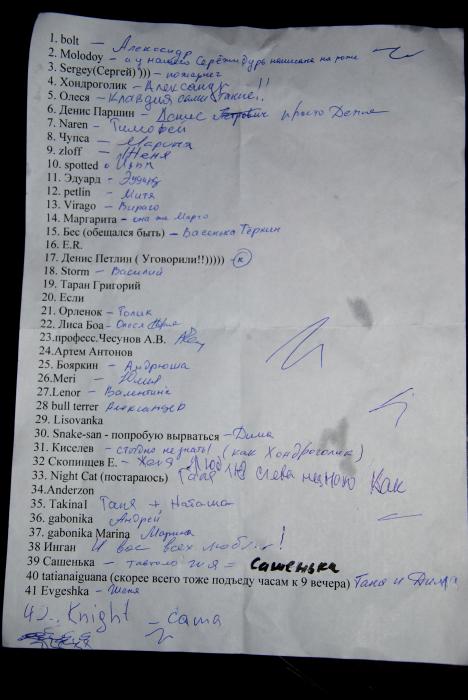 1. bolt — Александр
2. Molodoy — а у нашего Серёжи дурь написана на роже
3. Sergey(Сергей) ))) — пожарнег
4. Хондроголик — Александр!!
5. Олеся — Клавдия
6. Денис Паршин — Денис просто Деня
7. Naren — Тимофей
8. Чупса — Марина
9. zloff — Женя
10. spotted
11. Эдуард — Эдуард
12. petlin — Митя
13. Virago — Вираго
14. Маргарита — она же Марго
15. Бес (обещался быть) — Васенька Тёркин
16. E.R.
17. Денис Петлин ( Уговорили!!))))) — к
18. Storm — Василий
19. Таран Григорий
20. Если
21. Орленок — Толик
22. Лиса Боа — Олеся
23.професс.Чесунов А.В.
24.Артем Антонов
25. Бояркин — Андрюша
26.Meri — Юлия
27.Lenor — Валентина
28 bull terrer Александер
29. Lisovanka
30. Snake-san - попробую вырваться — Дима
31. Киселев — стыдно не знать! (как Хондроголика)
32 Скопинцев Е. — Женя
33. Night Cat (постараюсь) слева немного Как
34.Anderzon
35. Takina1 Таня + Наташа
36. gabonika Андрей
37. gabonika Marina Марина
38 Инган И вас всех люблю!
39 Сашенька — = Сашенька
40 tatianaiguana (скорее всего тоже подъеду часам к 9 вечера) Таня и Дима
41 Evgeshka — Женя
42. Knight — Саша